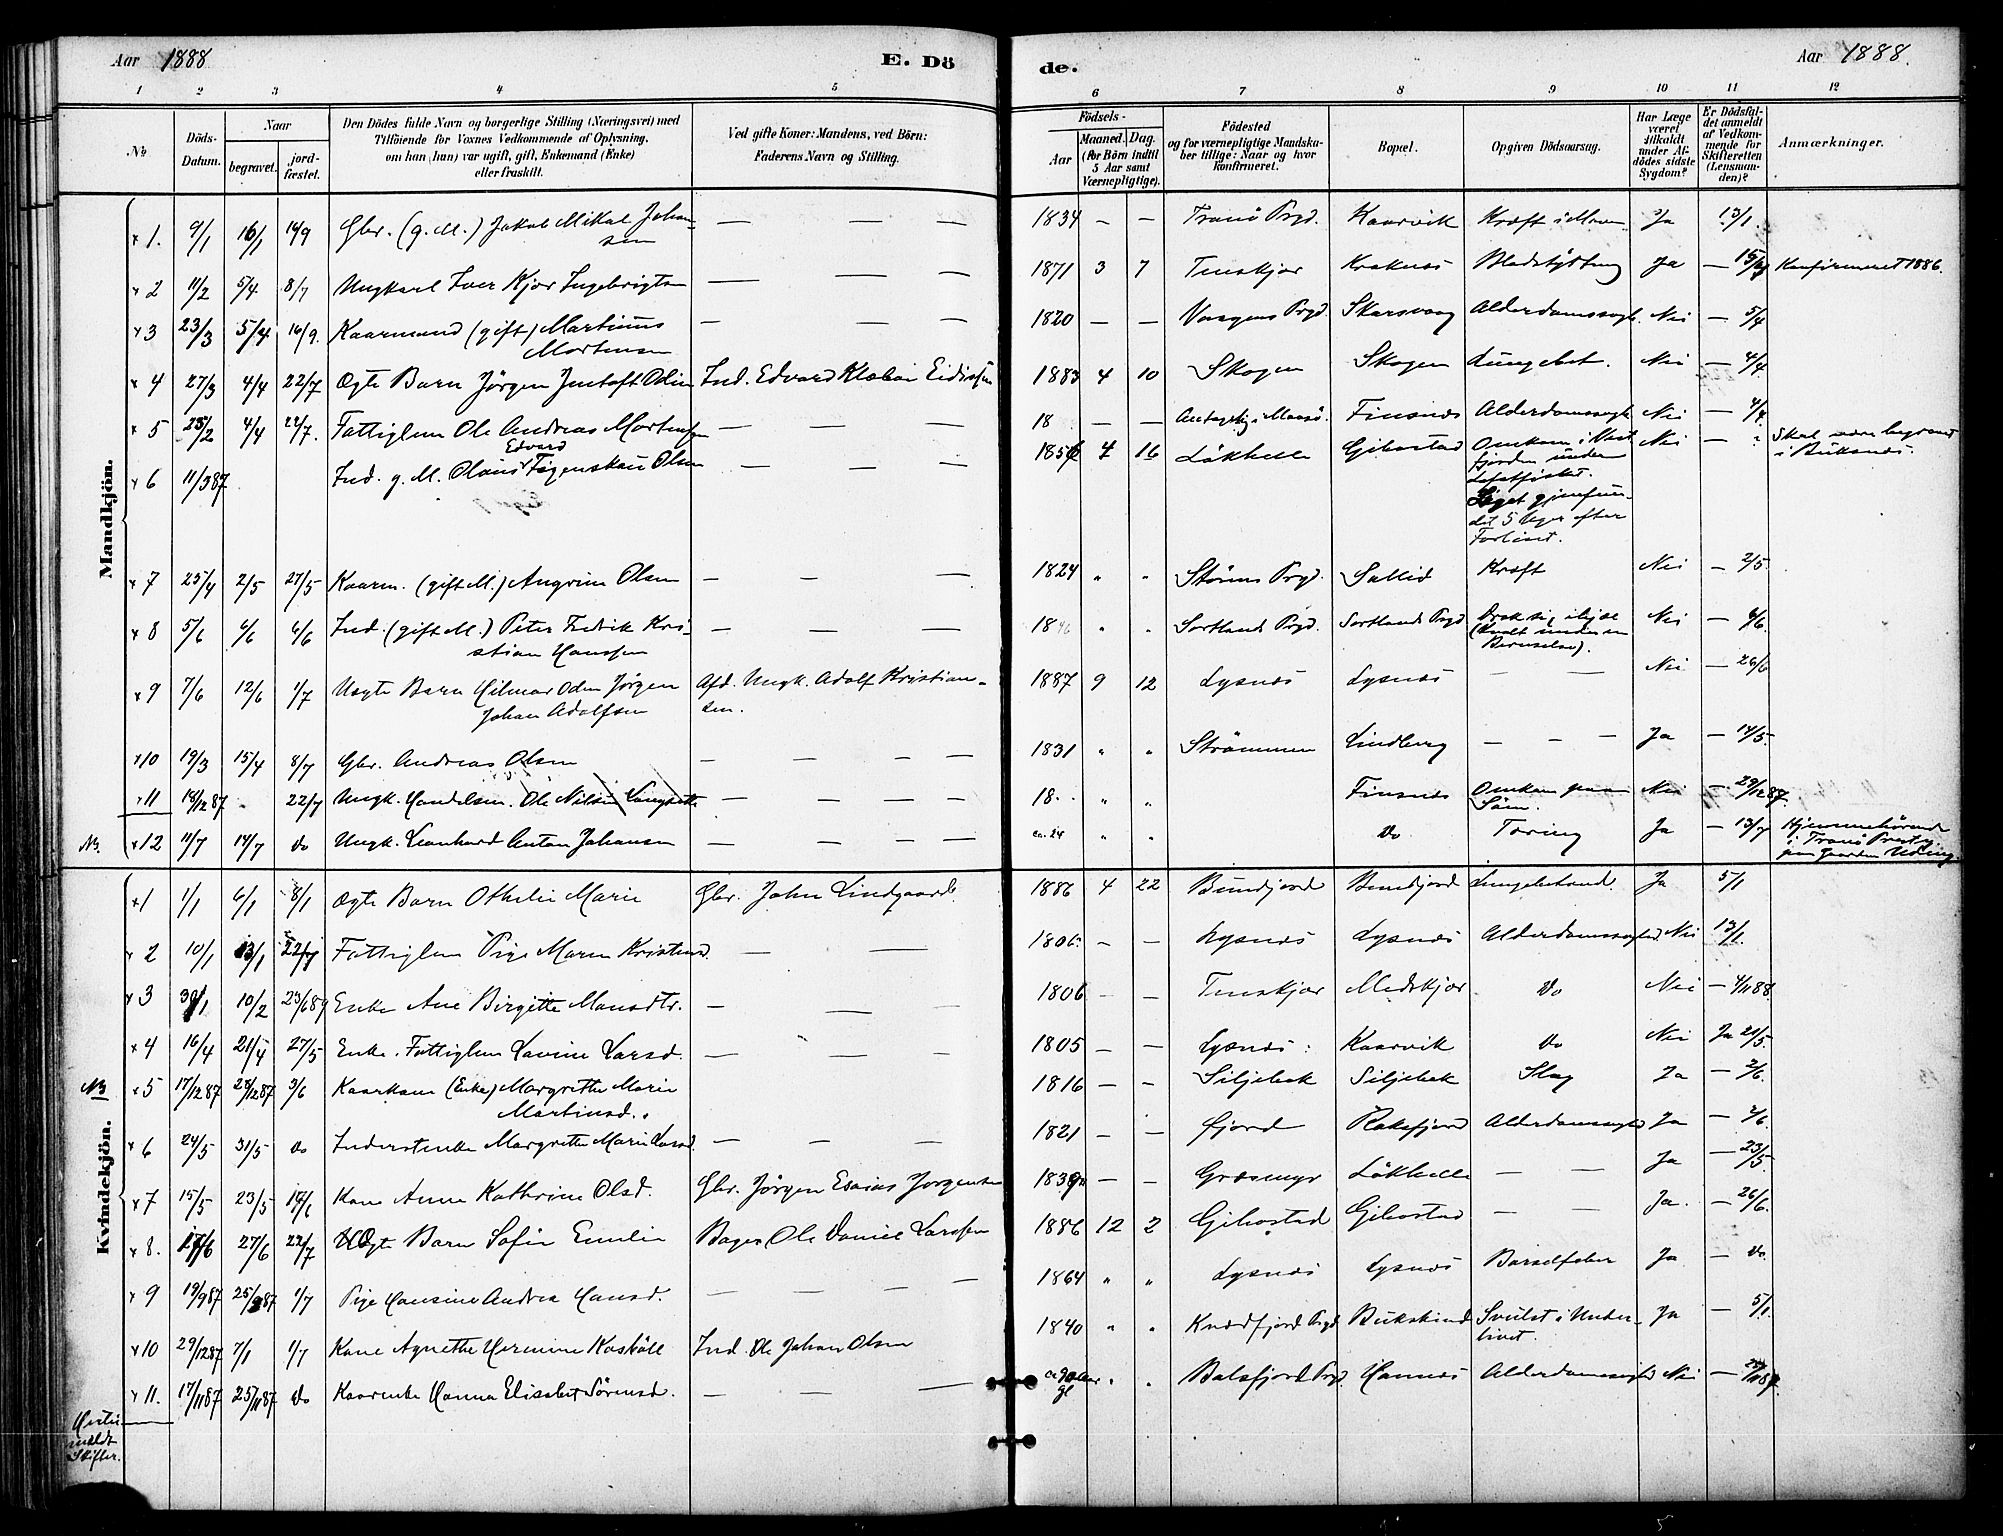 Aar 1888
E. Dö
de.
Aar 1888.
1 2 3 4 5 6 7 8 9 10 11 12
No
Döds-
Datum.
Naar
begravet.
jord-
fæstet.
Den Dödes fulde Navn og borgerlige Stilling (Næringsvei) med
Tilföiende for Voxnes Vedkommende af Oplysning,
om han (hun) var ugift, gift, Enkemand (Enke)
eller fraskilt.
Ved gifte Koner: Mandens, ved Börn:
Faderens Navn og Stilling.
Födsels-
Aar
Maaned. Dag.
(for Börn indtil
5 Aar samt
Værnepligtige).
Födested
og for værnepligtige Mandska-
ber tillige: Naar og hvor
konfirmeret.
Bopæl.
Opgiven Dödsaarsag.
Har Læge
været
tilkaldt
under Af-
dödes sidste
Sygdom?
Er Dödsfal-
det anmeldt
af Vedkom-
mende for
Skifteretten
(Lensman-
den)?
Anmærkninger.
Mandkjön.
x 1. 9/1 16/1 16/9 Gbr. (g. M.) Jakob Mikal Johan-
sen — — — 1834 — — Tranö Prgd. Kaarvik Kræft i Maven Ja 13/1.
x 2 11/2 5/4 8/7 Ungkarl Iver Kjer Ingebrigtsen — — — 1871 3 7 Tenskjer Kraknes Blodstyrtning Ja — Konfirmeret 1886.
x 3 23/3 5/4 16/9. Kaarmand (gift) Martinus
Mortensen — — — 1820 — — Vaagens Prgd. Skarsvaag Alderdomssvagh. Nei — 5/4
x 4 27/3 4/4 22/7 Ægte Barn Jörgen Justoft Odin Ind. Edvard Klæboe Eidissen 1883 4 10 Skogen Skogen Lungebet. Nei — 4/4
x 5 25/2 4/4 22/7. Fattiglem Ole Andreas Mortensen — — — 18 — — Antagelig i Maasö. Finsnes Alderdomssvagh. Nei — 4/4
x 6 11/3 87 Ind. g. M. Olaus Edvard Fögenskau Olsen — — — 1856 4 16 Lökhelle Gibostad Omkom i Vest
fjorden under
Lofotfisket.
Liget gjenfun-
det 5 Uger efter
Forliset. Nei — " Skal være begravet
i Buksnes.
x 7 25/4 2/5 27/5 Kaarm. (gift M.) Angrim Olsen — — — 1824 " " Störens Prgd. Sollid Kræft Nei — 2/5.
x 8 5/6 6/6 6/6 Ind. (gift M.) Peter Fedrik Kri-
stian Hanssen — — 1846 " " Sortlands Prgd. Sortlands Prgd Drak sig ihjel
(Dödt under en
Beruselse). Nei — 6/6.
x 9 7/6 12/6 1/7 Uægte Barn Hilmar Oden Jörgen
Johan Adolfsen Afd. Ungk. Adolf Kristian-
sen. 1887 9 12 Lysnes Lysnes — — Nei — 26/6
x 10 19/3 15/4 8/7 Gbr. Andreas Olsen — — — — 1831 " " Strömmen Lindberg — — — Ja — 14/5.
x 11 18/12 87 22/7 Ungk. Handelsm. Ole Nilsen — — — — 18 " " Finsnes Omkom paa
Söen. Nei — 29/12 87.
NB. x 12 11/7 14/7 do Ungk. Leonhard Anton Johansen — — — ca. 24 " " do Tæring Ja — 13/7 Hjemmehörende
i Tranö Prestgj.
paa Gaarden
Kvindekjön.
x 1 1/1 6/1 8/1 Ægte Barn Othelie Marie Gbr. John Lindgaard. 1886 4 22 Bundjord Bundjord Lungebetænd. Ja 5/1
x 2 10/1 13/1 22/7 Fattiglem Pige Maren Kristensd. — — 1806. — — Lysnes Lysnes Alderdomssvaghed Nei 13/1.
x 3 30/1 10/2 23/6 89 Enke Ane Birgitte Monsdtr. — — 1806 — — Tenskjer Medskjer do Nei — 4/11 88
x 4 16/4 21/4 27/5 Enke. Fattiglem Lavine Larsd. — — — 1805 — — Lysnes: Kaarvik do Nei Ja 21/5.
NB x 5 17/12 87 28/12 87 3/6 Kaarkone (Enke) Margrethe Marie
Martinsd. 1816 — — Siljebak Siljebak Slag Ja — 2/6.
x 6 24/5 31/5 do Inderstenke Margrethe Marie Larsd. — — — 1821 — — Fjord Rakefjord Alderdomssvaghed Ja — 2/6.
x 7 15/5 23/5 14/6 Kone Anne Kathrine Olsd. Gbr. Jörgen Esaias Jörgensen 1839 — — Græsmyr Lökhelle — — Ja — 23/5.
x 8. 17/6 27/6 22/7 Ægte Barn Sofie Emelie Bager Ole Daniel Larssen 1886 12 2 Gibostad Gibostad — — Ja. — 26/6.
x 9 19/9 87 25/9 87 1/7 Pige Hansine Andrea Hansd. — — — — 1864 " " Lysnes Lysnes Barselfeber Ja — do
x 10 29/12 87 7/1 1/7 Kone Agnethe Hermine Ind. Ole Johan Olsen 1840 " " Kvædfjord Prgd. Bukskind Svulst i Under-
livet. Ja — 5/1
x 11. 17/11 87 25/11 87 do Kaarenke Hanna Elisabet Sörensd. — — — ca 90 Aar
gl " " Balsfjord Prgd. Hannes Alderdomssvaghed Nei —
Hertil
meldt
Skifter.